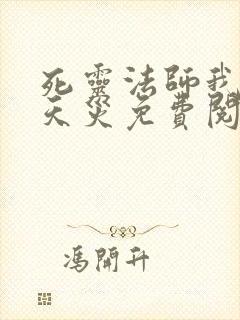 死靈法師我
天災免費閱
馮開升